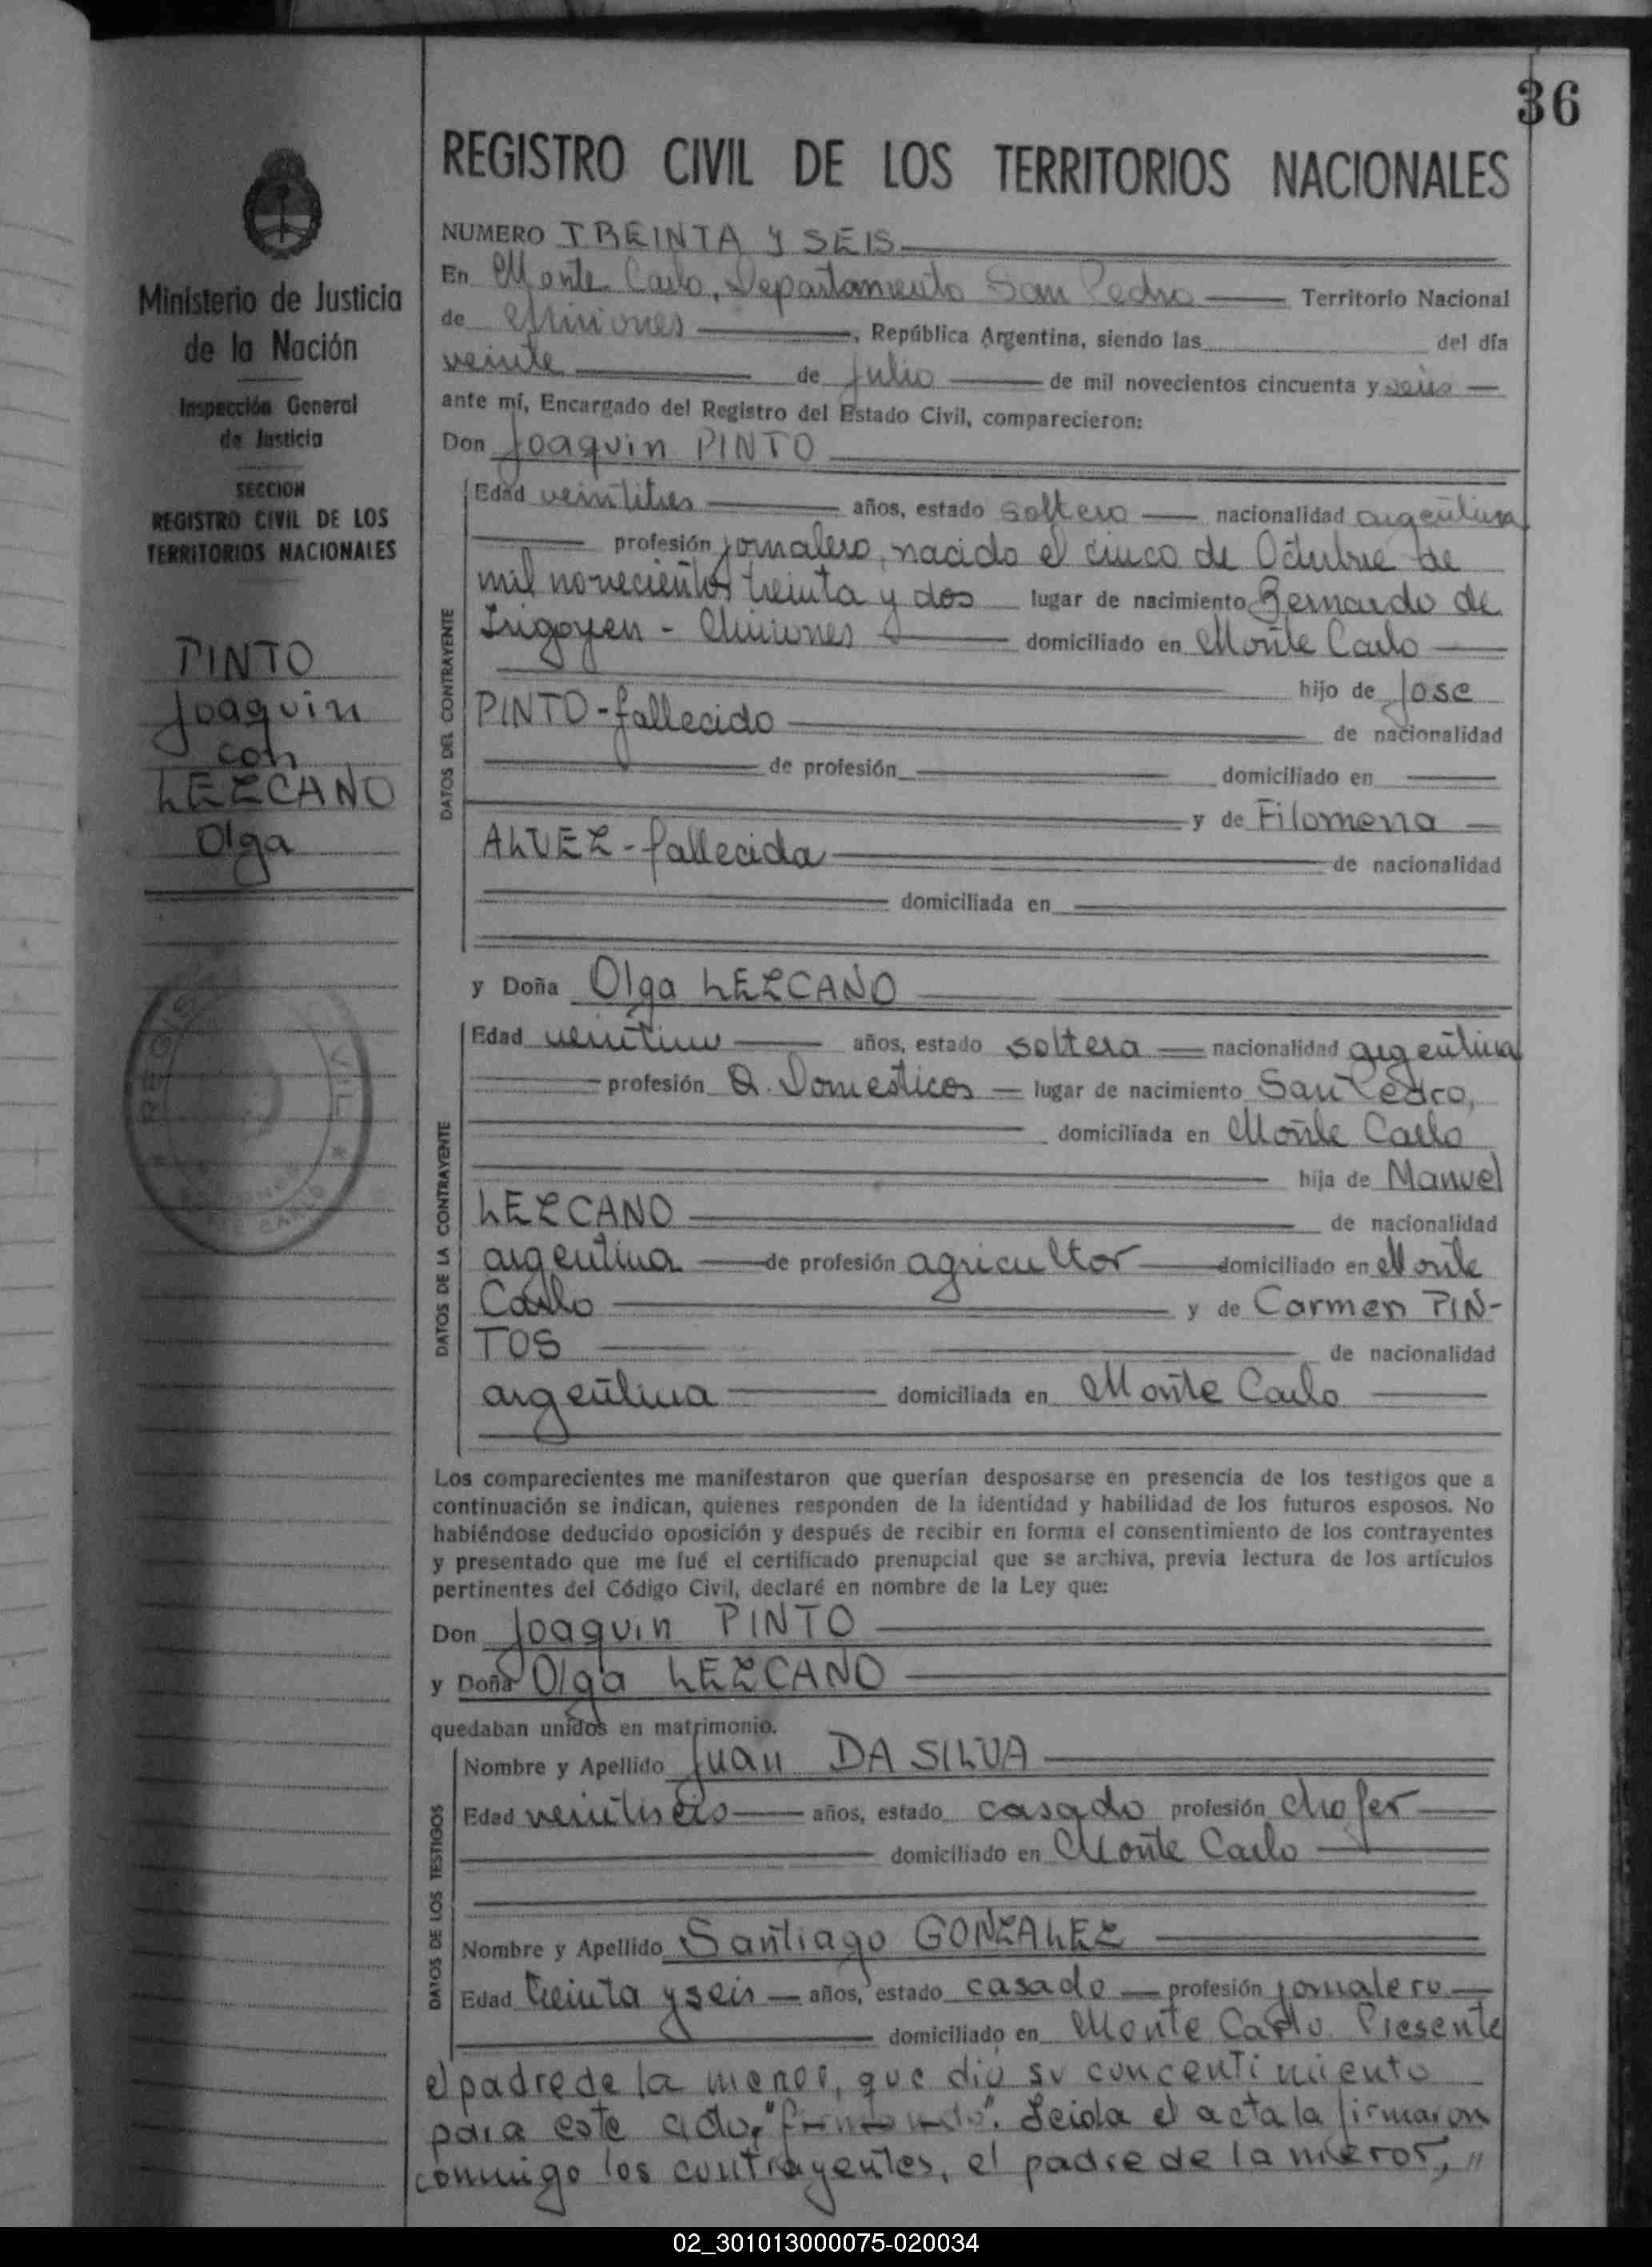 36
REGISTRO CIVIL DE LOS TERRITORIOS NACIONALES
Ministerio de Justicia
de la Nación
Inspección General
de Justicia
SECCION
REGISTRO CIVIL DE LOS
TERRITORIOS NACIONALES
PINTO
Joaquin
con
LEZCANO
Olga
NUMERO TREINTA Y SEIS
En Monte Carlo, Departamento San Pedro Territorio Nacional
de Misiones, República Argentina, siendo las del día
veinte de Julio de mil novecientos cincuenta y seis
ante mí, Encargado del Registro del Estado Civil, comparecieron:
Don Joaquin PINTO
DATOS DEL CONTRAYENTE
Edad veintitres años, estado soltero nacionalidad argentina
profesión jornalero, nacido el cinco de Octubre de
mil novecientos treinta y dos lugar de nacimiento Bernardo de
Irigoyen - Misiones domiciliado en Monte Carlo
hijo de Jose
PINTO - fallecido de nacionalidad
de profesión domiciliado en
y de Filomena
ALVEZ - fallecida de nacionalidad
domiciliada en
y Doña Olga LEZCANO
DATOS DE LA CONTRAYENTE
Edad años, estado soltera nacionalidad argentina
profesión Q. Domesticos lugar de nacimiento San Pedro,
domiciliada en Monte Carlo
hija de Manuel
LEZCANO de nacionalidad
argentina de profesión agricultor domiciliado en Monte
Carlo y de Carmen PIN-
TOS de nacionalidad
argentina domiciliada en Monte Carlo
Los comparecientes me manifestaron que querían desposarse en presencia de los testigos que a
continuación se indican, quienes responden de la identidad y habilidad de los futuros esposos. No
habiéndose deducido oposición y después de recibir en forma el consentimiento de los contrayentes
y presentado que me fué el certificado prenupcial que se archiva, previa lectura de los artículos
pertinentes del Código Civil, declaré en nombre de la Ley que:
Don Joaquin PINTO
y Doña Olga LEZCANO
quedaban unidos en matrimonio.
DATOS DE LOS TESTIGOS
Nombre y Apellido Juan DA SILVA
Edad veintiseis años, estado casado profesión chofer
domiciliado en Monte Carlo
Nombre y Apellido Santiago GONZALEZ
Edad treinta y seis años, estado casado profesión jornalero
domiciliado en Monte Carlo. Presente
el padre de la menor, que dió su concentimiento
para este acto, Leida el acta la firmaron
conmigo los contrayentes, el padre de la menor, "
02_301013000075-020034